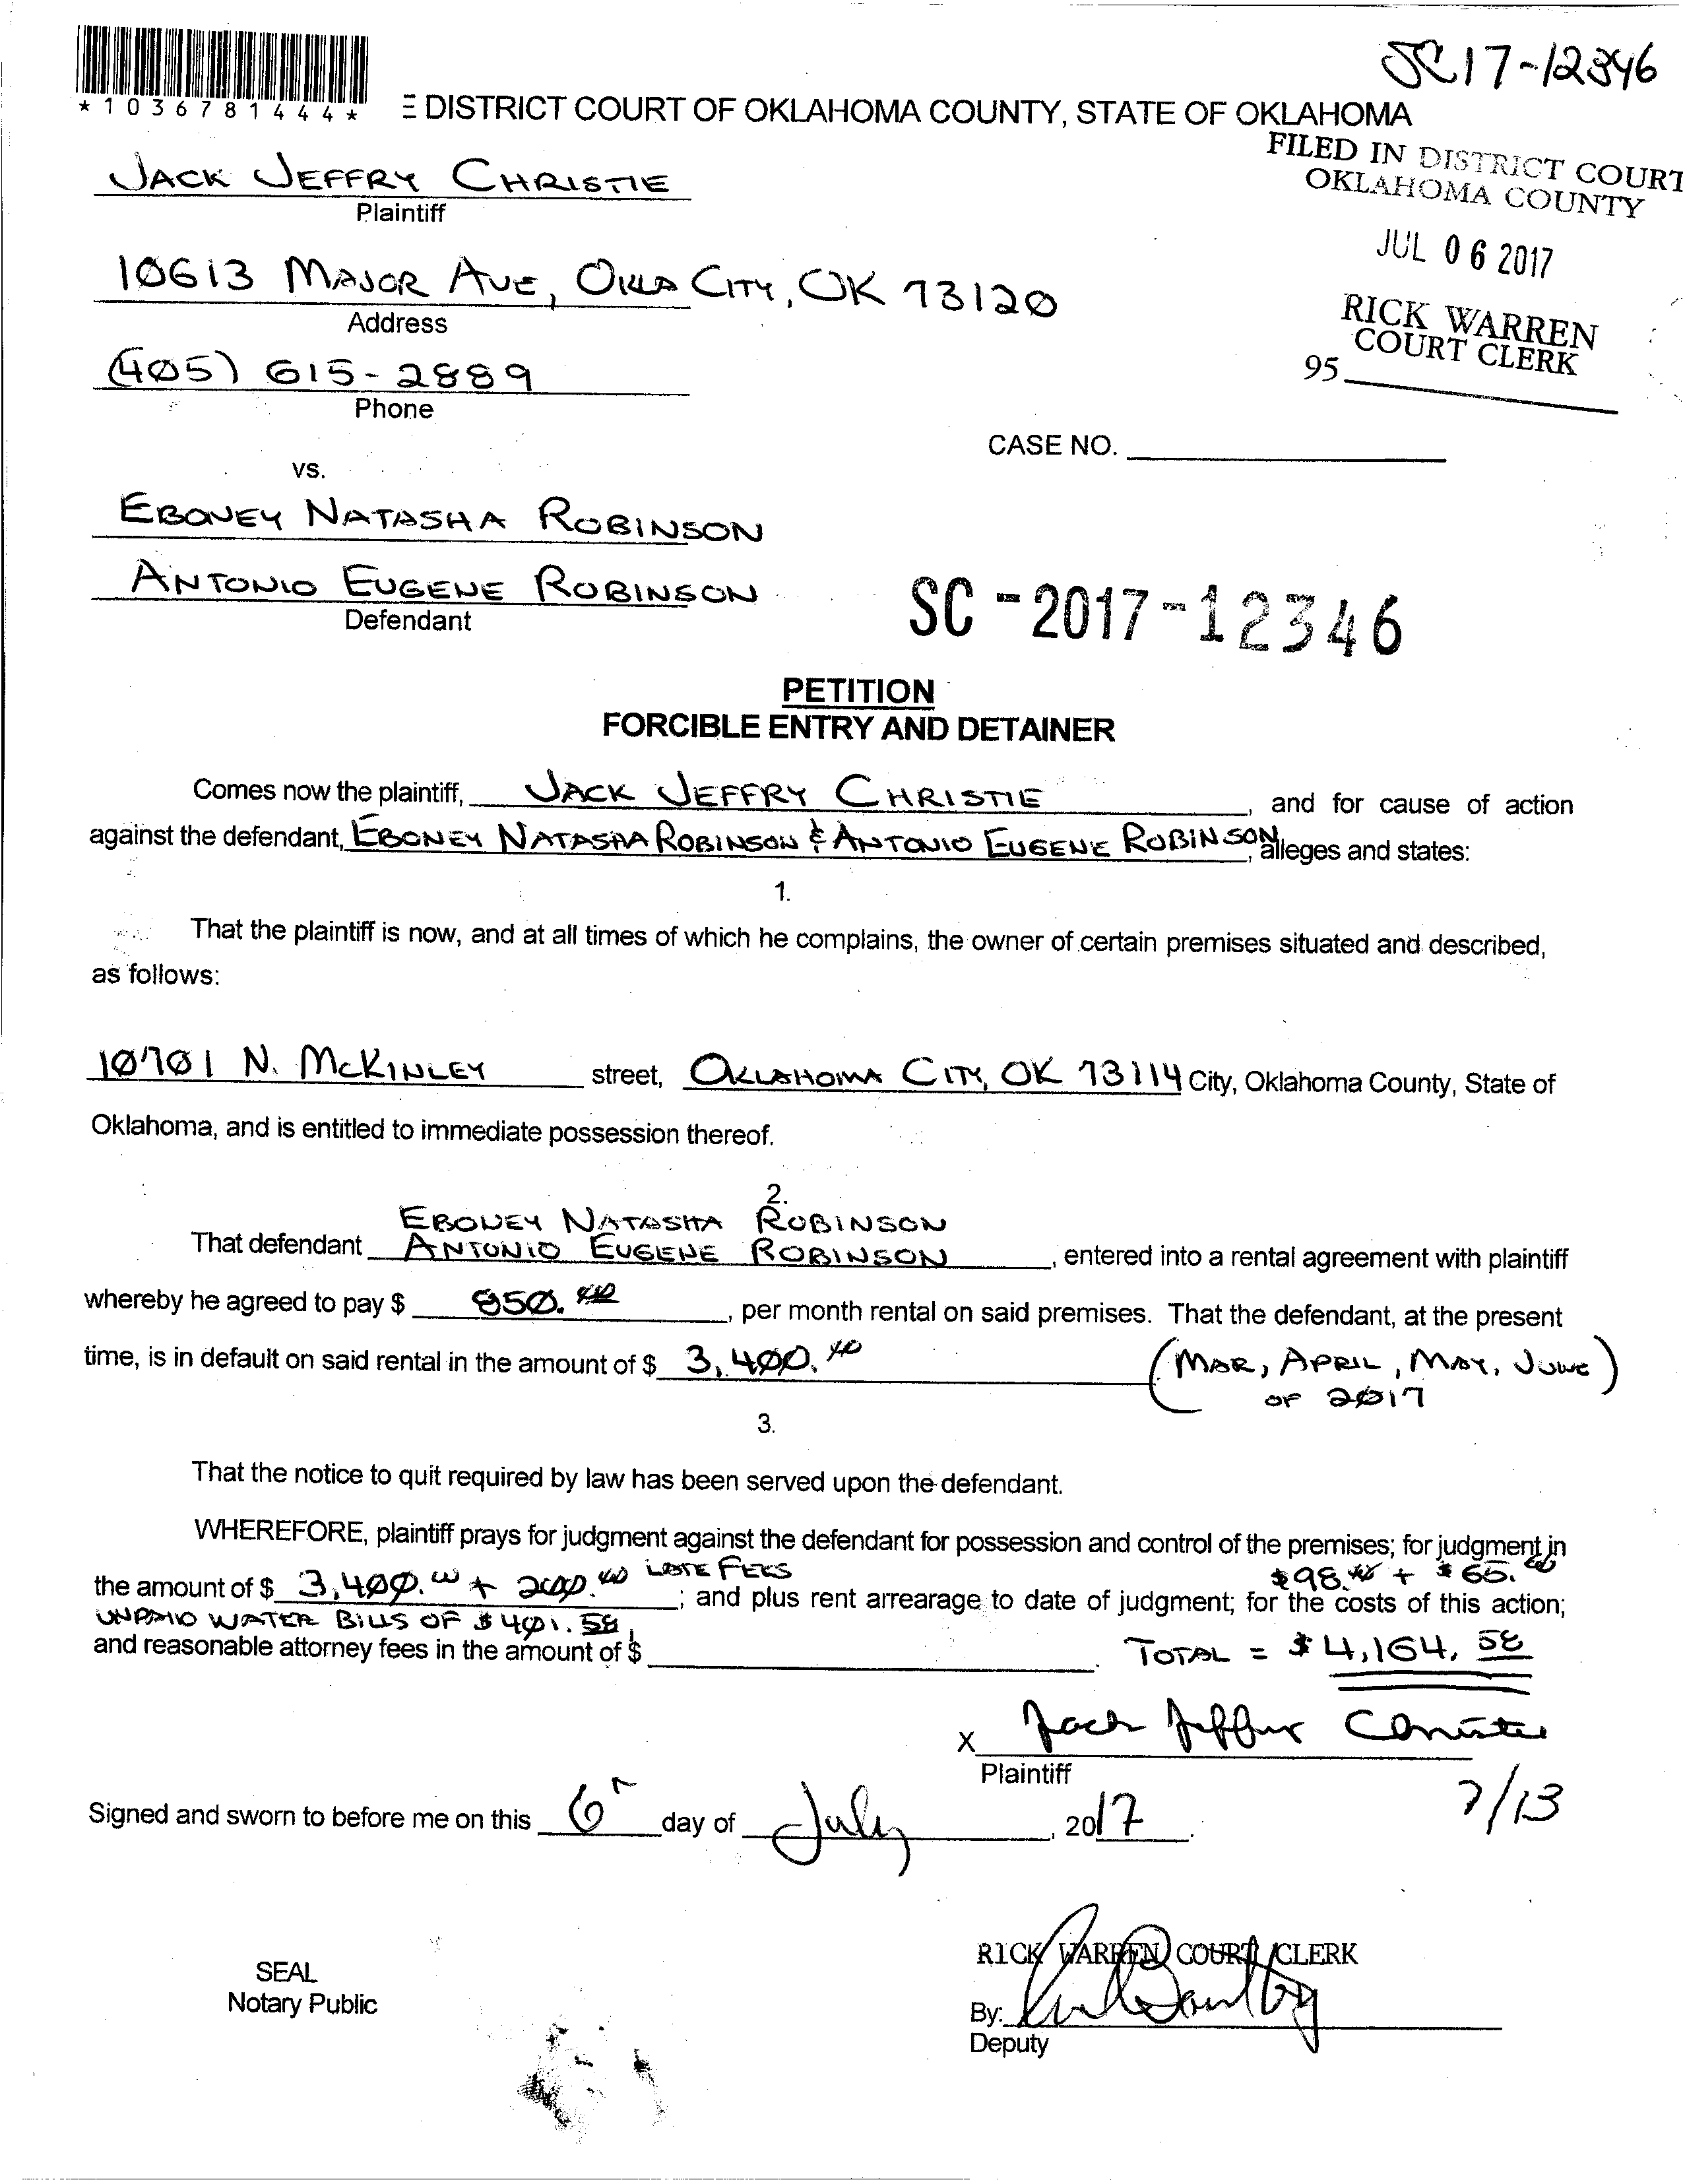 SC17-12346
*1036781444*
E DISTRICT COURT OF OKLAHOMA COUNTY, STATE OF OKLAHOMA
FILED IN DISTRICT COURT
OKLAHOMA COUNTY
JUL 06 2017
RICK WARREN
COURT CLERK
95
JACK JEFFRY CHRISTIE
Plaintiff
10613 MAJOR AVE, OKLA CITY, OK 73120
Address
(405) 615-2889
Phone
CASE NO.
vs.
EBONEY NATASHA ROBINSON
ANTONIO EUGENE ROBINSON
Defendant
SC-2017-12346
PETITION
FORCIBLE ENTRY AND DETAINER
Comes now the plaintiff, JACK JEFFRY CHRISTIE, and for cause of action
against the defendant, EBONEY NATASHA ROBINSON & ANTONIO EUGENE ROBINSON, alleges and states:
1.
That the plaintiff is now, and at all times of which he complains, the owner of certain premises situated and described,
as follows:
10701 N. McKINLEY street, OKLAHOMA CITY, OK 73114 City, Oklahoma County, State of
Oklahoma, and is entitled to immediate possession thereof.
2.
EBONEY NATASHA ROBINSON
That defendant ANTONIO EUGENE ROBINSON, entered into a rental agreement with plaintiff
whereby he agreed to pay $ 850.00, per month rental on said premises. That the defendant, at the present
time, is in default on said rental in the amount of $ 3,400.00 (MAR, APRIL, MAY, JUNE)
OF 2017
3.
That the notice to quit required by law has been served upon the defendant.
WHEREFORE, plaintiff prays for judgment against the defendant for possession and control of the premises; for judgment in
the amount of $ 3,400.00 + 200.00 LATE FEES; and plus rent arrearage to date of judgment; for the costs of this action; $98.00 + $65.00
UNPAID WATER BILLS OF $401.58,
and reasonable attorney fees in the amount of $ . TOTAL = $4,164.58
X Jack Jeffry Christie
Plaintiff
7/13
Signed and sworn to before me on this 6th day of July, 2017.
RICK WARREN COURT CLERK
SEAL
Notary Public
By:
Deputy